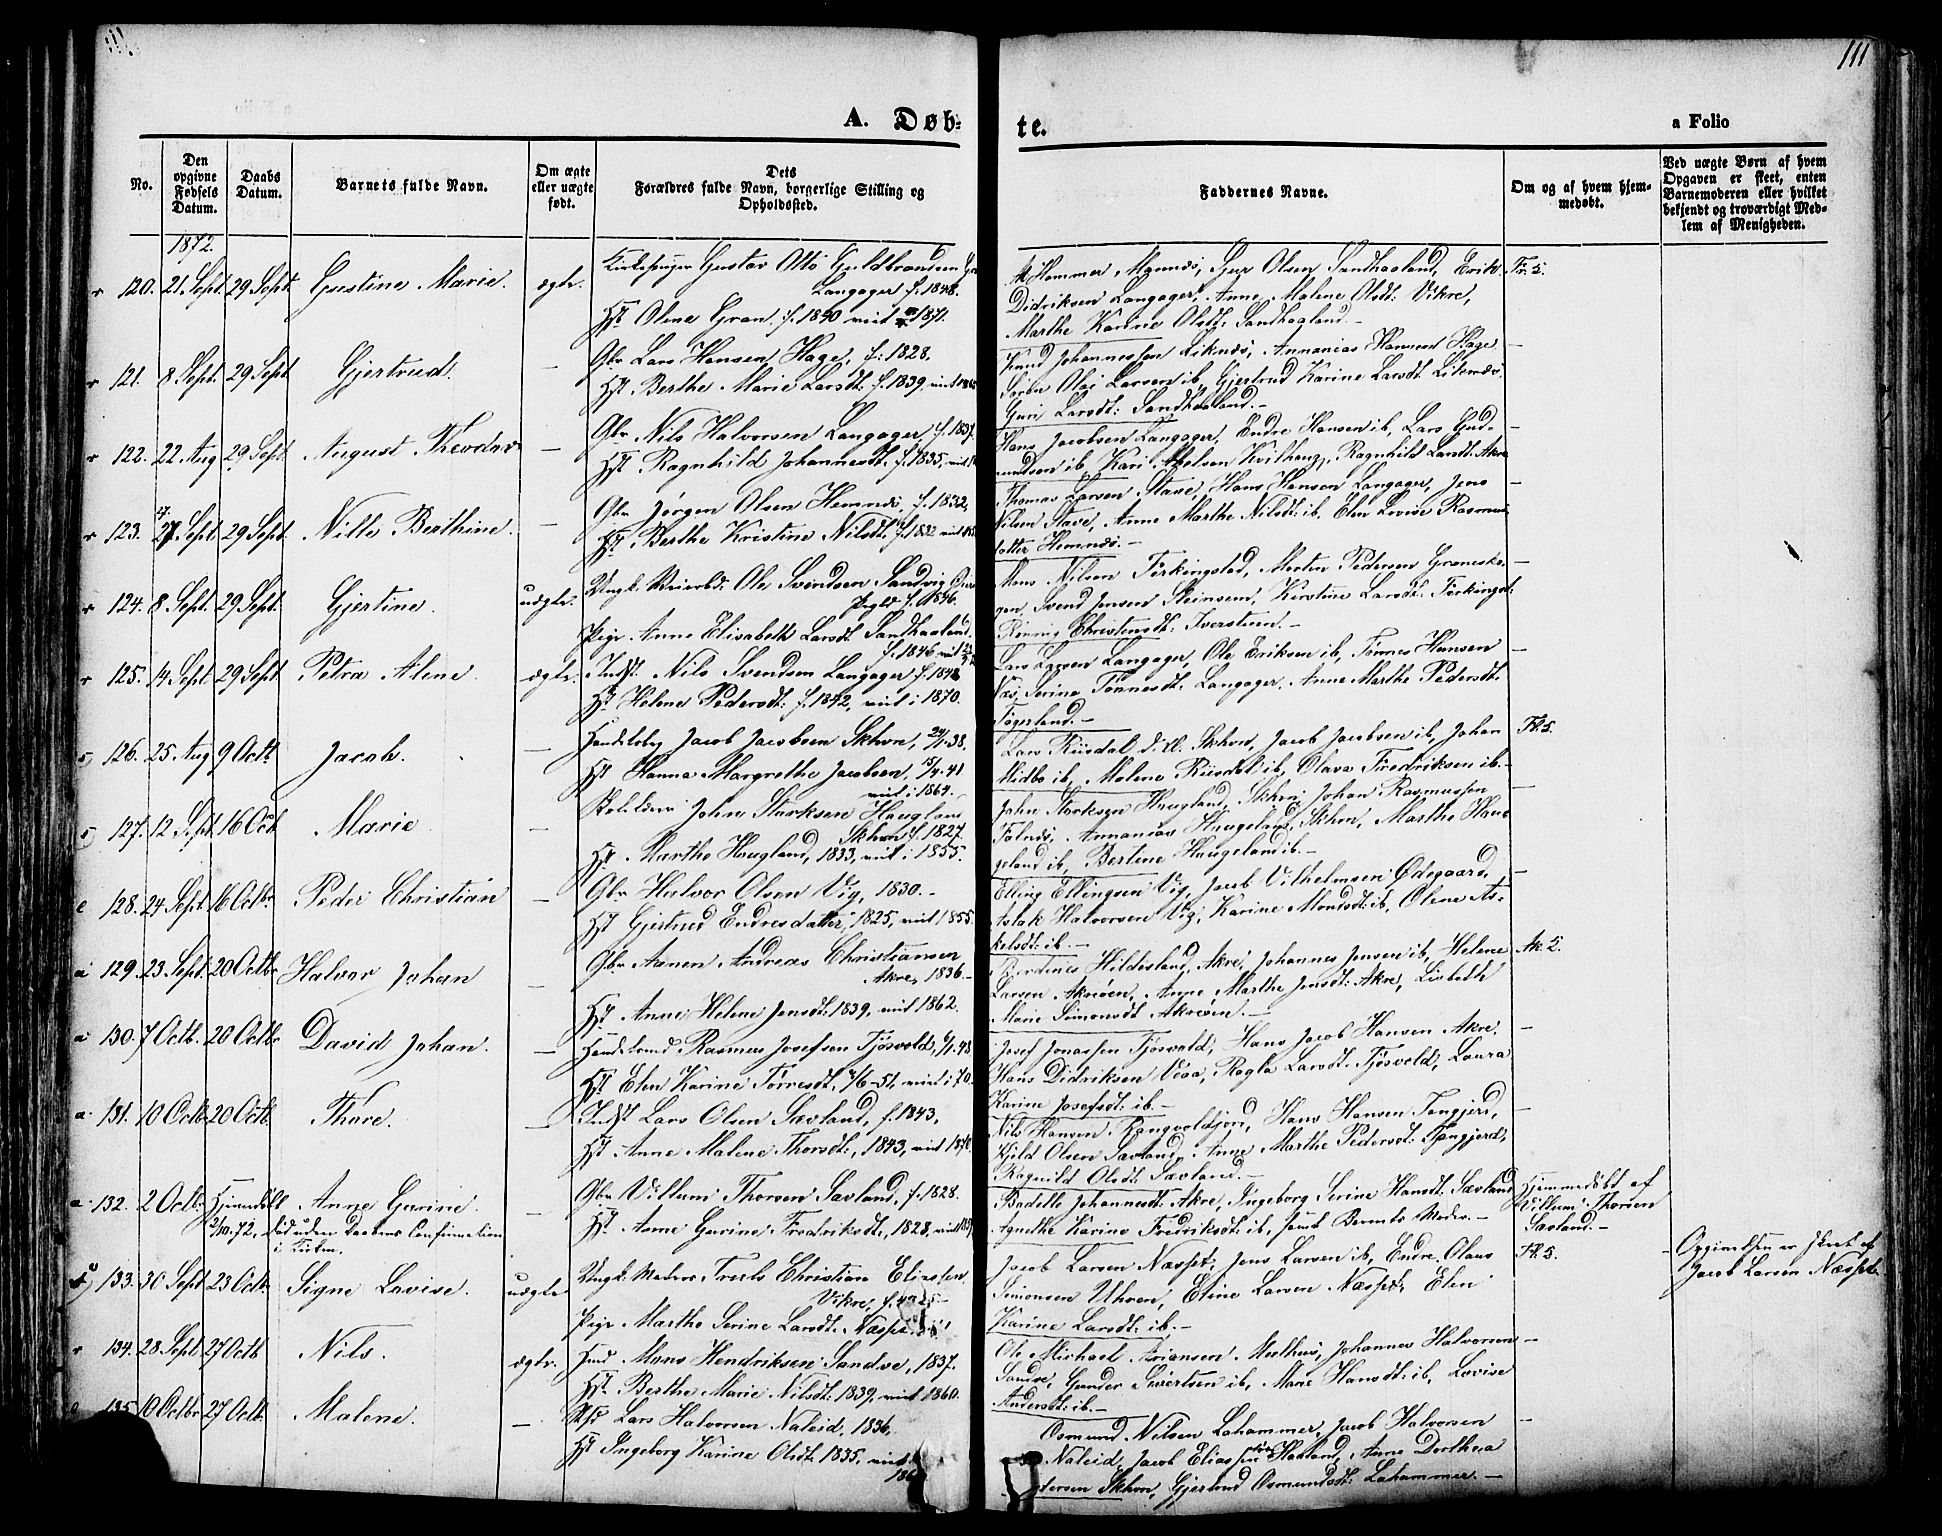 111
A. Døb-
te.
a Folio
No.
Den opgivne Fødsels Datum.
Daabs Datum.
Barnets fulde Navn.
Om ægte eller uægte født.
Dets Forældres fulde Navn, borgerlige Stilling og Opholdssted.
Faddernes Navne.
Om og af hvem hjemmedøbt.
Ved uægte Børn af hvem Opgaven er skeet, enten Barnemoderen eller hvilket bekjendt og troværdigt Medlem af Menigheden.
1872.
120. 21 Sept. 29 Sept. Gustine Marie. ægte.
Kirkesanger Gustav Otto Guldbrandsen
Langager f. 1848.
Hst. Olene Gran f. 1840 viet 1871.
Hemmer Mannes, Gur Olsen Sandhaaland, Erik
Didriksen Langager, Anne Malene Olsdt: Vikre,
Marthe Karine Olsdt: Sandhaaland.
121. 8 Sept. 29 Sept. Gjertrud. —
Gbr Lars Hansen Hage, f: 1828.
Hst Berthe Marie Larsdt. f. 1839. viet
Knud Johannessen Liknes, Annanias Hansen Hage
Søren Olai Larsen ib, Gjertrud Karine Larsdt Liknes,
Guri Larsdt: Sandhaaland.
122. 22 Aug 29 Sept. August Theodor —
Gbr Nils Halvorsen Langager, f. 1837.
Hst Ragnhild Johannesdt. f. 1835, viet
Hans Jacobsen Langager, Endre Hansen ib, Lars Gud-
mundsen ib, Kari Kvilhaug, Ragnhild Larsdt. Akre
123. 27 Sept 29 Sept. Nille Berthine. —
Gbr Jørgen Olsen Hemnes, f. 1832,
Hst Berthe Kristine Nilsdt. f. 1832 viet
Thomas Larsen Stave, Hans Hansen Langager, Jens
Nilsen Stave, Anne Marthe Nilsdt: ib. Elen Lovise Rasmus
datter Hemnes.
124. 8 Sept. 29 Sept. Gjertine. uægte.
Ungk. Ole Svendsen Sandvig
f. 1846.
Pige Anne Elisabeth Larsdt Sandhaaland.
f. 1846
Mons Nilsen Ferkingstad, Morten Pedersen
Svend Jensen Steinsem, Kirstine Larsdt: Ferkingst:
Rønnig Christensdt: Iversteen.
125. 14 Sept 29 Sept Petra Alene. ægte.
Indst. Nils Svendsen Langager f. 1848
Hst Helene Pedersdt: f. 1842, viet i 1870.
Lars Larsen Langager, Ole Eriksen ib, Tønnes Hansen
Næs, Serine Tønnesdt: Langager, Anne Marthe Pedersdt
126. 25 Aug 9 Octb Jacob. —
Handelsbg Jacob Jacobsen Skhvn, 24/1. 38.
Hst Hanna Margrethe Jacobsen, 15/4. 41
viet i 1864.
Lars Riisdal Skhvn, Jacob Jacobsen ib, Johan
Midbø ib, Malene Riisdal ib, Olava Fredriksen ib.
127. 12 Sept. 16 Oct Marie —
John Storksen Haugland
Skhvn f. 1827.
Hst Marthe Haugland, 1833, viet i 1855.
John Storksen Haugland, Skhvn, Johan Rasmussen
Annanias Haugeland, Skhvn, Marthe Hau
geland ib, Bertine Haugeland ib.
128. 24 Sept. 16 Octbr. Peder Christian —
Gbr Halvor Olsen Vig, 1830.
Hst Gjertrud Endresdatter, 1825, viet 1855.
Elling Ellingsen Vig, Jacob Vilhelmsen Ødegaard,
Aslak Halvorsen Vig, Karine Mondsdt: ib, Olene As-
kelsdt: ib.
129. 23. Sept. 20 Octbr Halvor Johan —
Gbr Aanen Andreas Christiansen
Akre, 1836.
Hst. Anne Helene Jensdt: 1839, viet 1862.
Hildesland, Akre, Johannes Jensen ib, Helene
Larsen Akrøen, Anne Marthe Jensdt: Akre, Lisbeth
Marie Simonsdt Akrøen.
130. 7 Octb. 20 Octbr. David Johan. —
Rasmus Josefsen Tjøsvold, 6/1. 48.
Hst Elen Karine Tørresdt, 4/6-51, viet i 70.
Josef Jonassen Tjøsvold, Hans Jacob Hansen Akre,
Hans Didriksen Veaa, Ragla Larsdt. Tjøsvold, Laura
Karine Josefsdt: ib.
131. 10 Octb 20 Octb. Thore. —
Indst Lars Olsen Sævland, f. 1843,
Hst Anne Malene Thorsdt:, 1843, viet
Nils Hansen Rangvoldjord, Hans Hansen Tangjerd,
Kjeld Olsen Sævland, Anne Marthe Pedersdt: Tangjerd,
Ragnild Olsdt: Sævland.
132. 2 Octbr. Hjemdøbt Anne Gurine. —
2/10. 72, død uden Daabens Confirmation
i Kirken.
Gbr Villum Thorsen Sævland, f. 1828.
Hst. Anne Gurine Fredriksdt:, 1828, viet
Badille Johannesdt: Akre, Ingeborg Serine Hansdt: Sævland
Agnethe Karine Fredriksdt: ib, samt Barnets Moder.
Hjemmedøbt af
Villum Thorsen
Sævland.
133. 30 Sept 23 Octbr. Signe Lovise. uægte
Ungk. Truls Christian Eliassen
Vikre,
Pige Marthe Serine Larsdt: Næsset
Jacob Larsen Næsset, Jens Larsen ib, Endre Olaus
Simonsen Uhren, Eline Larsen Næsset, Elen
Karine Larsdt: ib.
Opgivelsen er skeet af
Jacob Larsen Næsset
134. 28 Sept. 27 Octb Nils. ægte.
Mons Hendriksen Sandve, 1837.
Hst. Berthe Marie Nilsdt: 1839, viet 1860.
Ole Michael Arjansen Johannes Halvorsen
Sandve, Gunder Sivertsen ib, Marie Hansdt: ib, Lovise
Andersdt: ib.
135 10 Octbr 27 Octb. Malene. —
Lars Halvorsen Naleid, 1836.
Hst Ingeborg Karine Olsdt: 1835, viet
Osmund Nilsen Lahammer, Jacob Halvorsen
Naleid, Jacob Eliassen Hovland, Anne Dorthea
Skhvn, Gjertrud Osmundsdt: Lahammer.